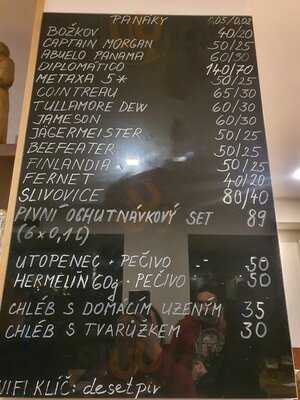 PANÁKY 0,05/0,02
BOŽKOV 40/20
CAPTAIN MORGAN 50/25
ABUELO PANAMA 60/30
DIPLOMATICO 140/70
METAXA 5* 50/25
COINTREAU 65/30
TULLAMORE DEW 60/30
JAMESON 60/30
JÄGERMEISTER 50/25
BEEFEATER 50/25
FINLANDIA 50/25
FERNET 40/20
SLIVOVICE 80/40
PIVNÍ OCHUTNÁVKOVÝ SET 89
(6x0,1l)
UTOPENEC + PEČIVO - 50
HERMELÍN 60g + PEČIVO 50
CHLÉB S DOMÁCÍM UZENÝM 35
CHLÉB S TVARŮŽKEM 30
WIFI KLÍČ: desetpiv